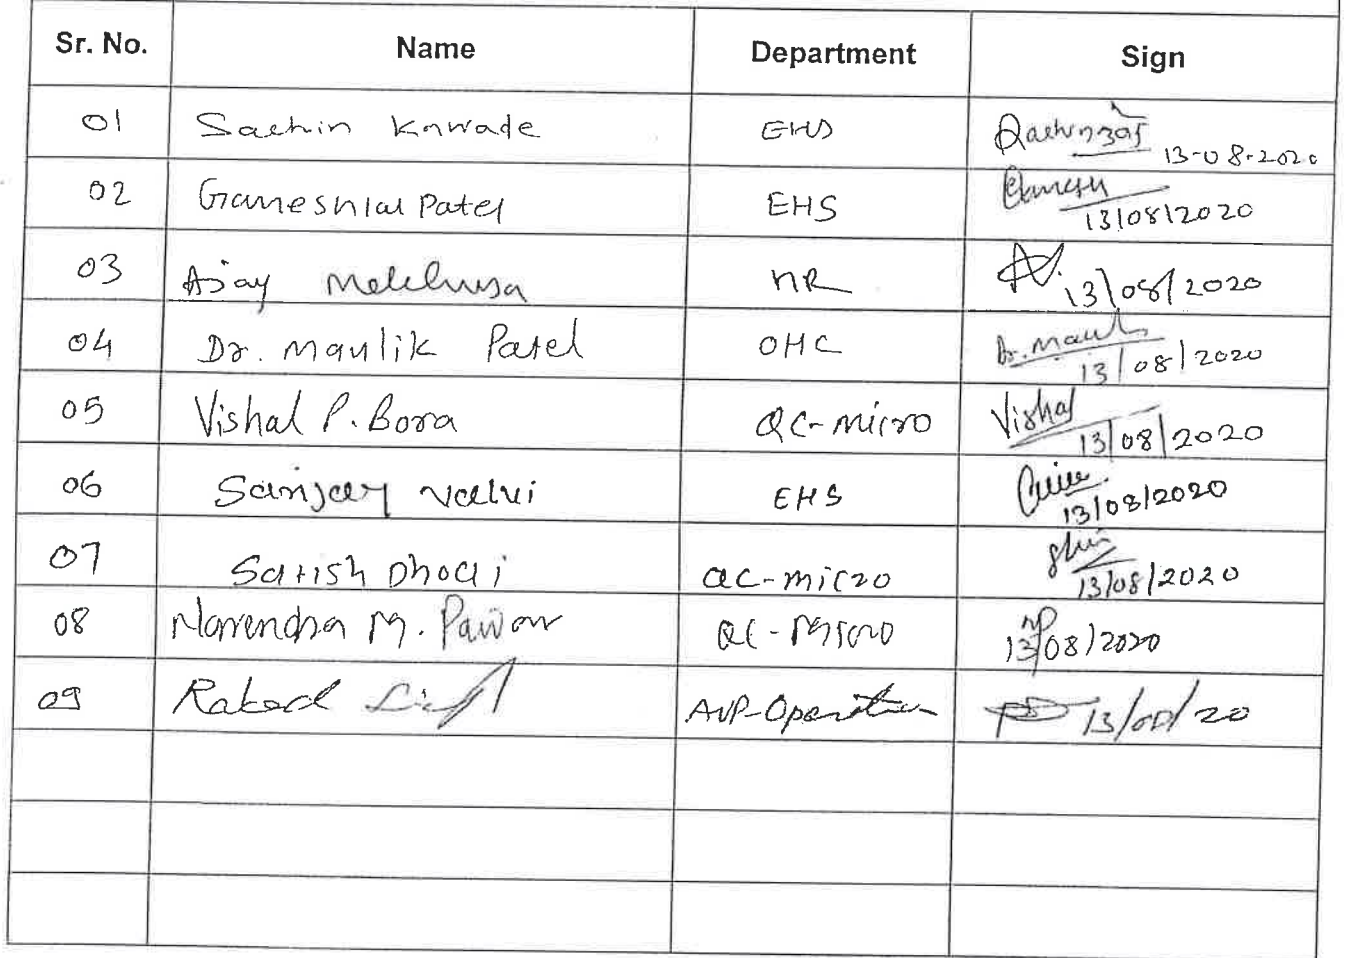 Sr. No. Name Department Sign
01 Sachin Knwade EHS 13-08-2020
02 Ganeshlal Patel EHS 13/08/2020
03 Ajay HR 13/08/2020
04 Dr. Maulik Patel OHC Dr. Maulik 13/08/2020
05 Vishal P. Bora QC-micro Vishal 13/08/2020
06 Sanjay Valvi EHS 13/08/2020
07 Satish Dhodi QC-micro 13/08/2020
08 Narendra M. Pawar QC-Micro NP 13/08/2020
09 AVP-Operation 13/08/20